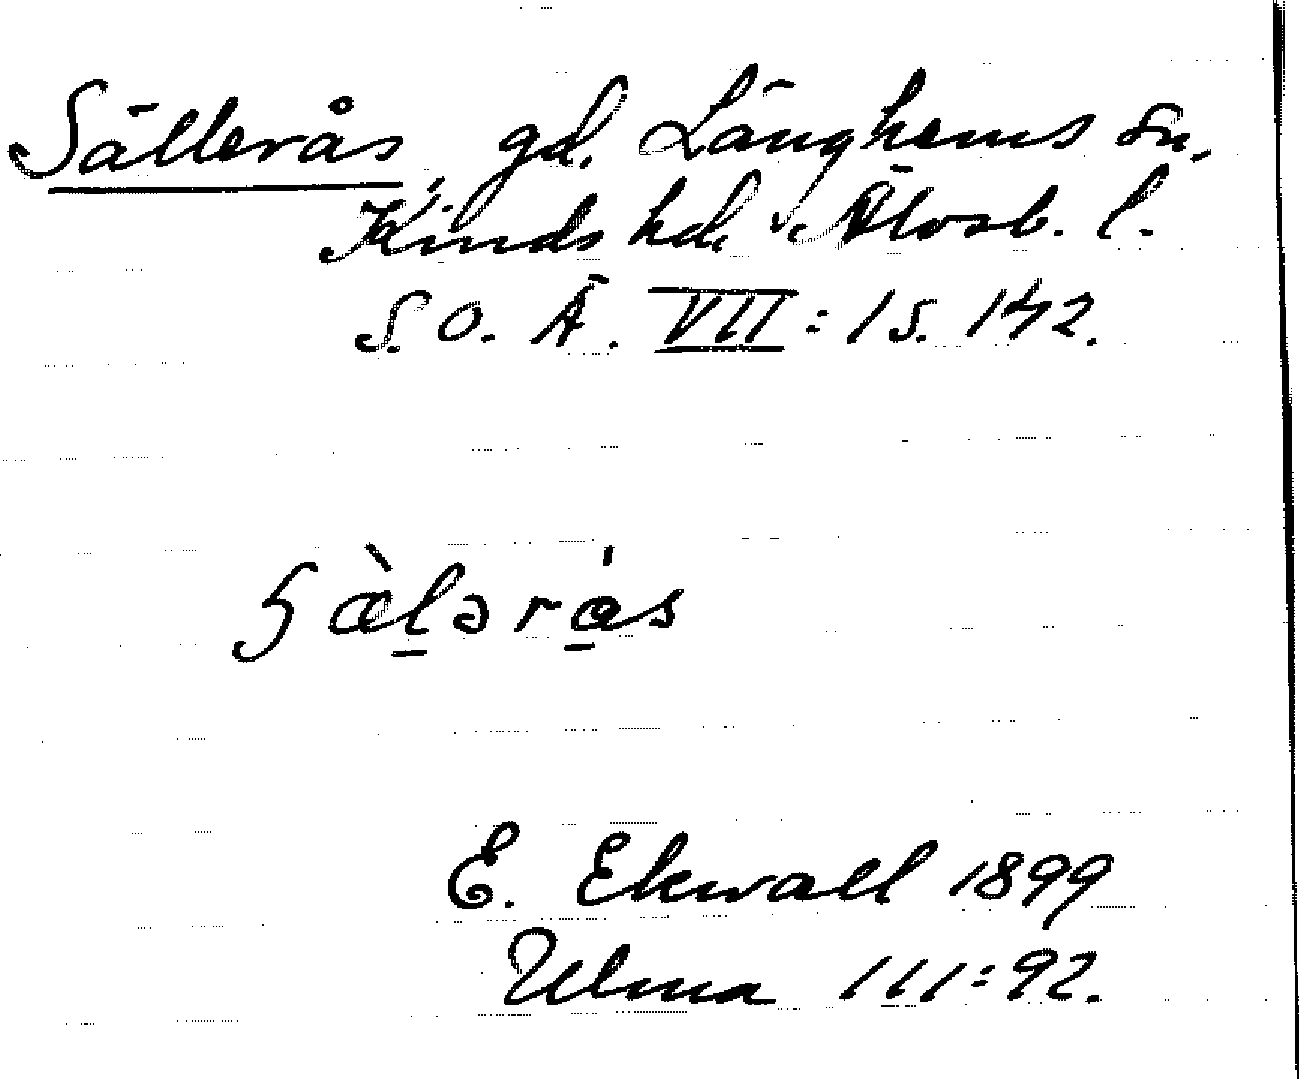 Sällerås, gd. Länghems sn,
Kinds hd. Älvsb. l.
S. O. Ä. VII: 1 s. 142.
sæ̀l̠əra̠̍s
E. Ekwall 1899
Ulma 111:92.